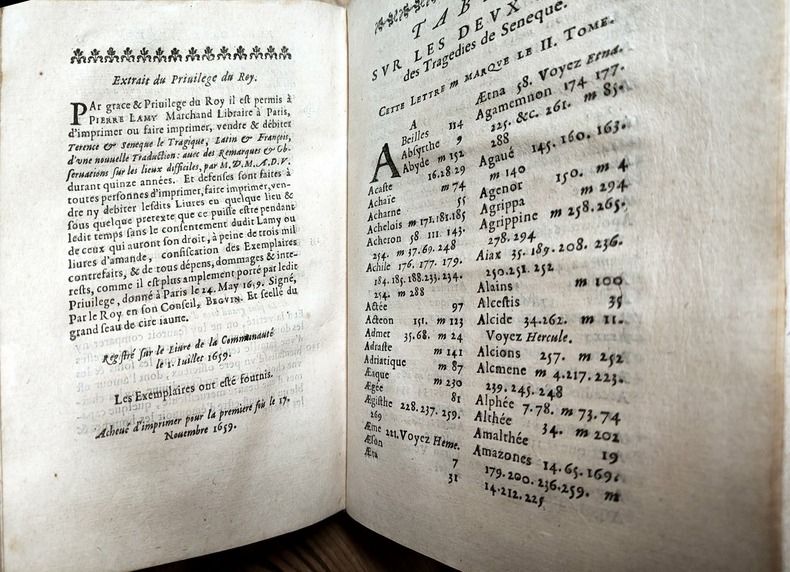 Extrait du Priuilege du Roy.
PAr grace & Priuilege du Roy il est permis à
PIERRE LAMY Marchand Libraire à Paris,
d'imprimer ou faire imprimer, vendre & débiter
Terence & Seneque le Tragique, Latin & François,
d'vne nouvelle Traduction: auec des Remarques & Ob-
seruations sur les lieux difficiles, par M.D.M.A.D.V.
durant quinze années. Et defenses sont faites à
toutes personnes d'imprimer, faire imprimer, ven-
dre ny débiter lesdits Liures en quelque lieu &
sous quelque pretexte que ce puisse estre pendant
ledit temps sans le consentement dudit Lamy ou
de ceux qui auront son droit, à peine de trois mil
liures d'amande, confiscation des Exemplaires
contrefaits, & de tous dépens, dommages & inte-
rests, comme il est plus amplement porté par ledit
Priuilege, donné à Paris le 24. May 1659. Signé,
Par le Roy en son Conseil, BEGVIN. Et seellé du
grand seau de cire iaune.
Registré sur le Liure de la Communauté
le 1. Iuillet 1659.
Les Exemplaires ont esté fournis.
Acheué d'imprimer pour la premiere fois le 17.
Nouembre 1659.
TAB
SVR LES DEVX
des Tragedies de Seneque.
CETTE LETTRE m MARQVE LE II. TOME.
A
ABeilles 114
Absyrthe 9
Abyde m 152
16.28 29
Acaste m 74
Achaïe 55
Acharne
Achelois m 171.181.185
Acheron 58 111. 143.
254. m 37.69.248
Achile 176. 177. 179.
184.185.188.233.234.
254. m 288
Actée 97
Acteon 151. m 123
Admet 35.68. m 24
Adraste m 141
Adriatique m 87
Æaque m 230
Ægée 81
Ægisthe 228.237.259.
269
Æme 221. Voyez Heme.
Æson 7
Æta 31
Ætna 58. Voyez Etna.
Agamemnon 174 177.
225. &c. 261. m 85.
288
Agaué 145. 160. 163.
m 140
Agenor 150. m 4
Agrippa m 294
Agrippine m 258.265.
278.294
Aiax 35.189.208.236.
250.251.252
Alains m 100
Alcestis 35
Alcide 34.262. m 11.
Voyez Hercule.
Alcions 257. m 252
Alcmene m 4.217.223.
239.245.248
Alphée 7.78. m 73.74
Althée 34. m 202
Amalthée 19
Amazones 14.65.169.
179.200.236.259. m
14.212.225